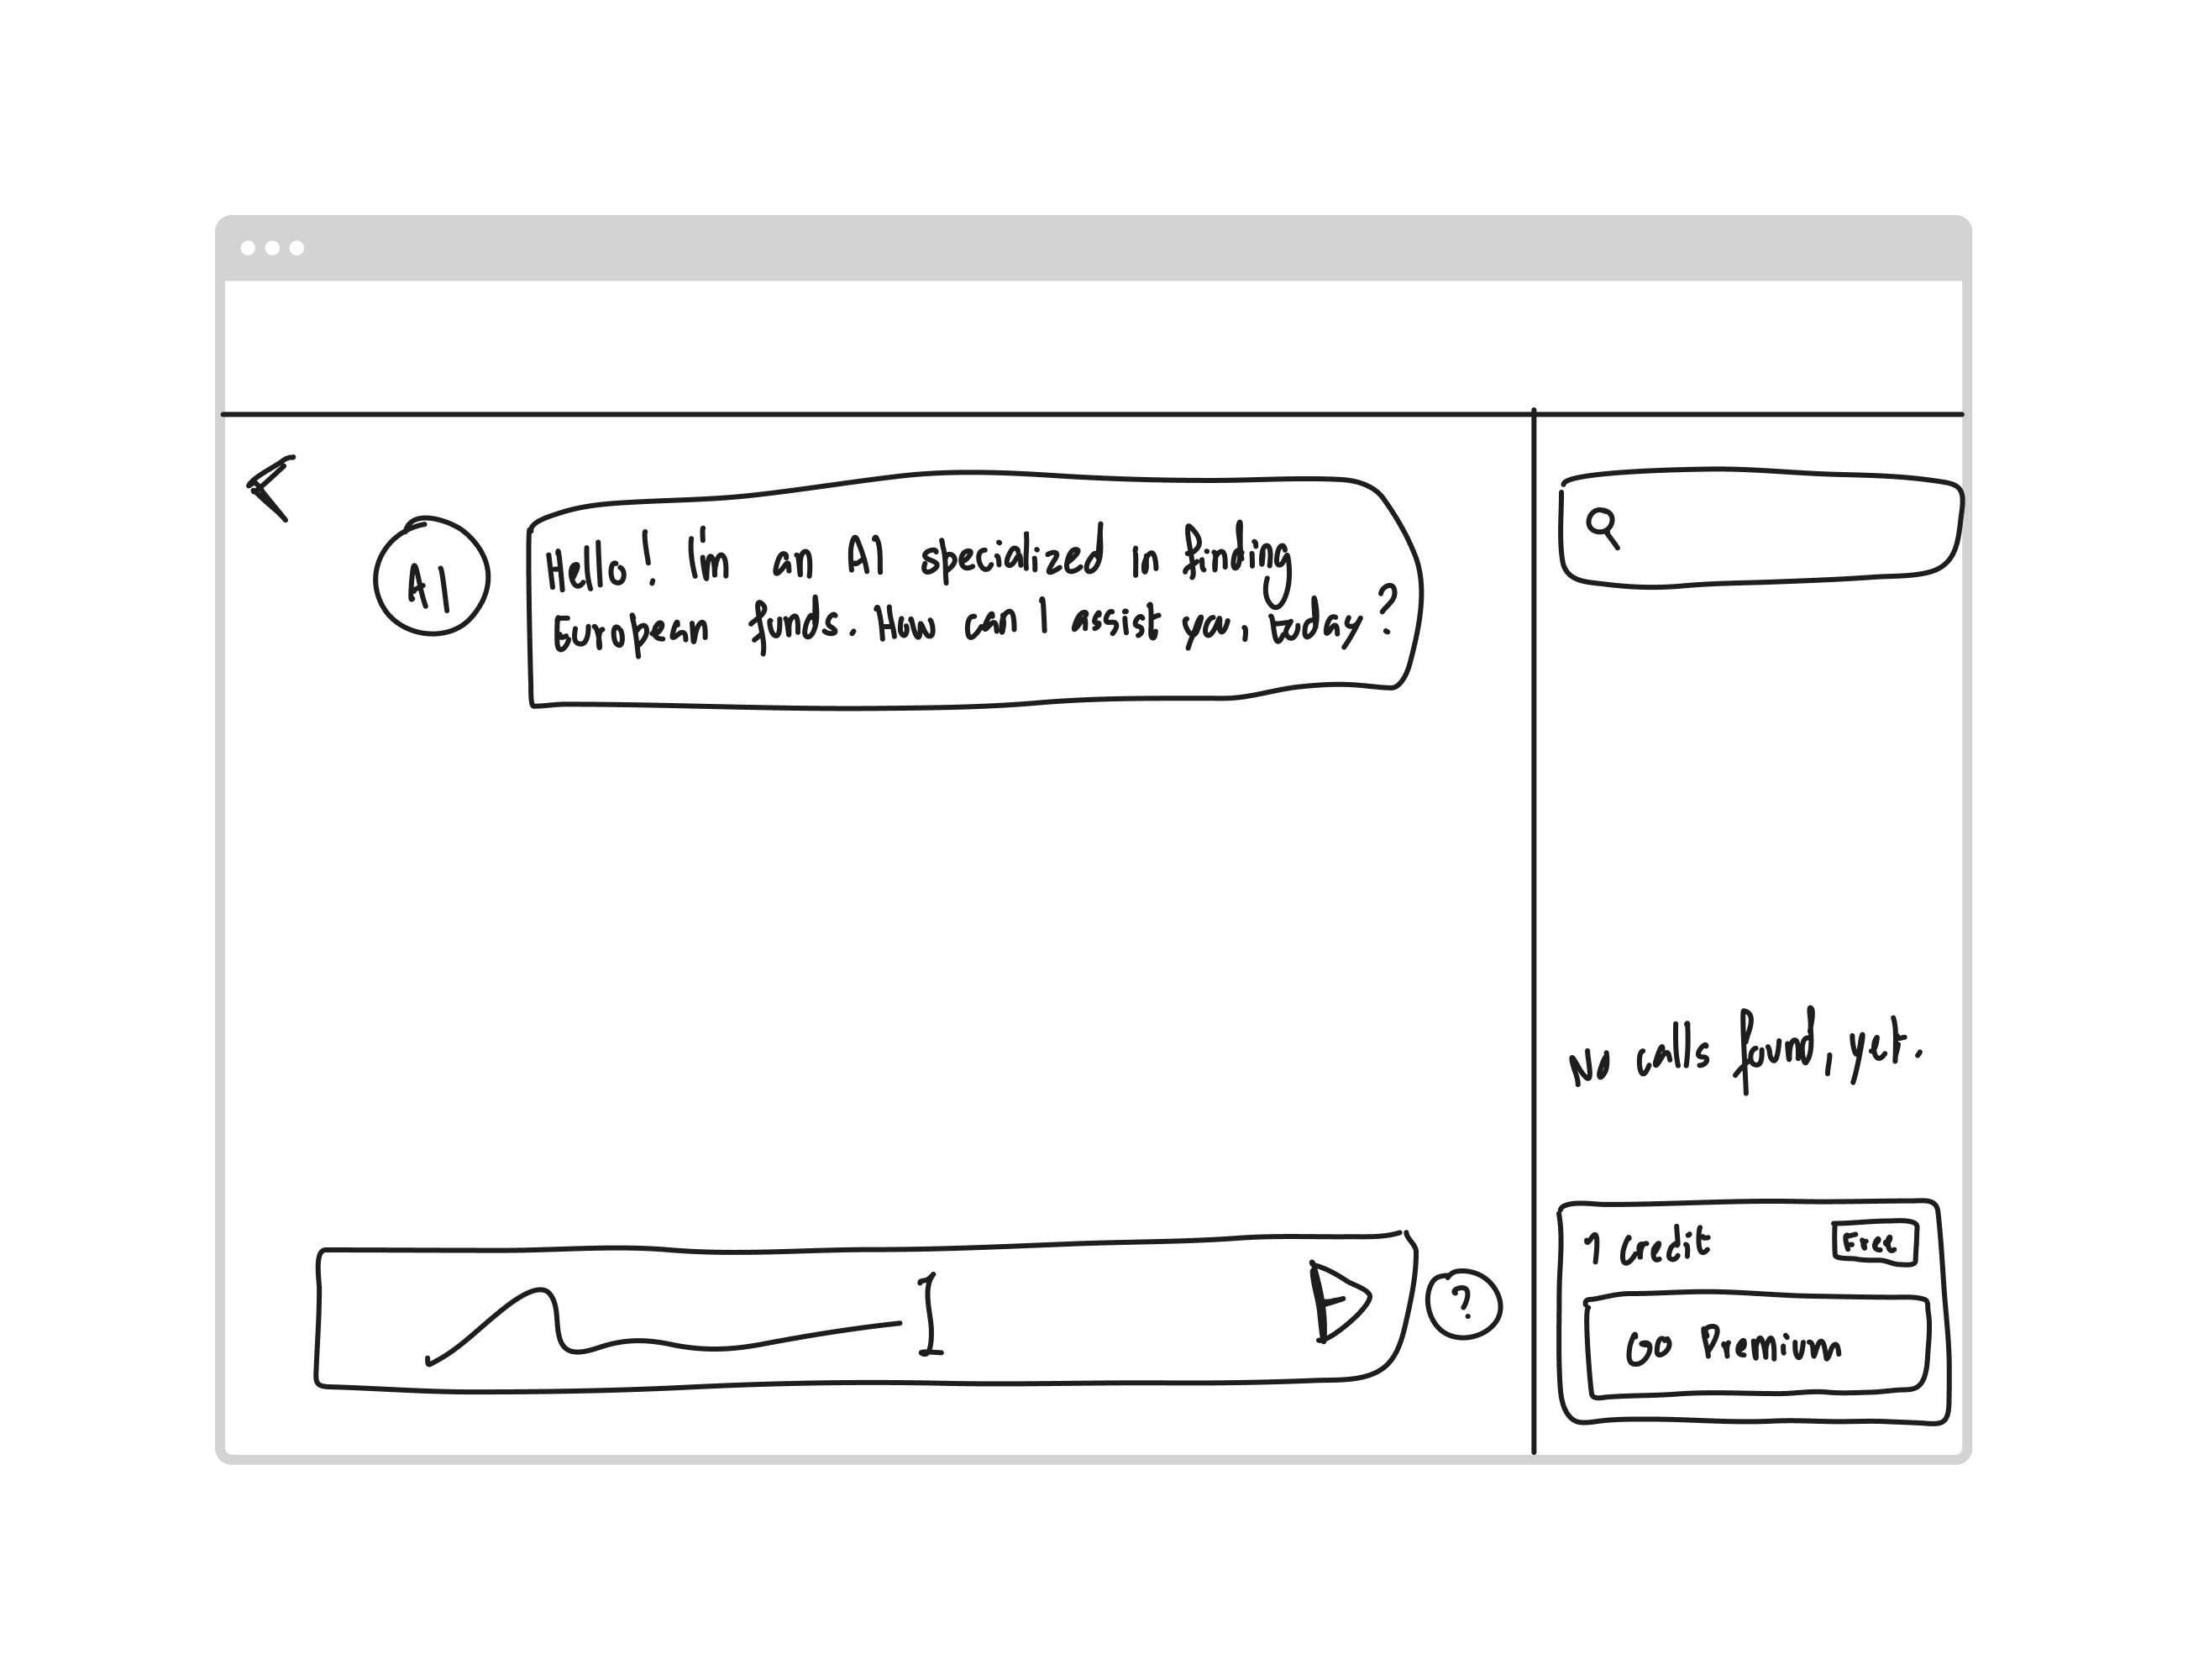 AI
Hello! I'm an AI specialized in finding
European funds. How can I assist you, today?
No calls found, yet.
1 Credit
Free
Go Premium
?